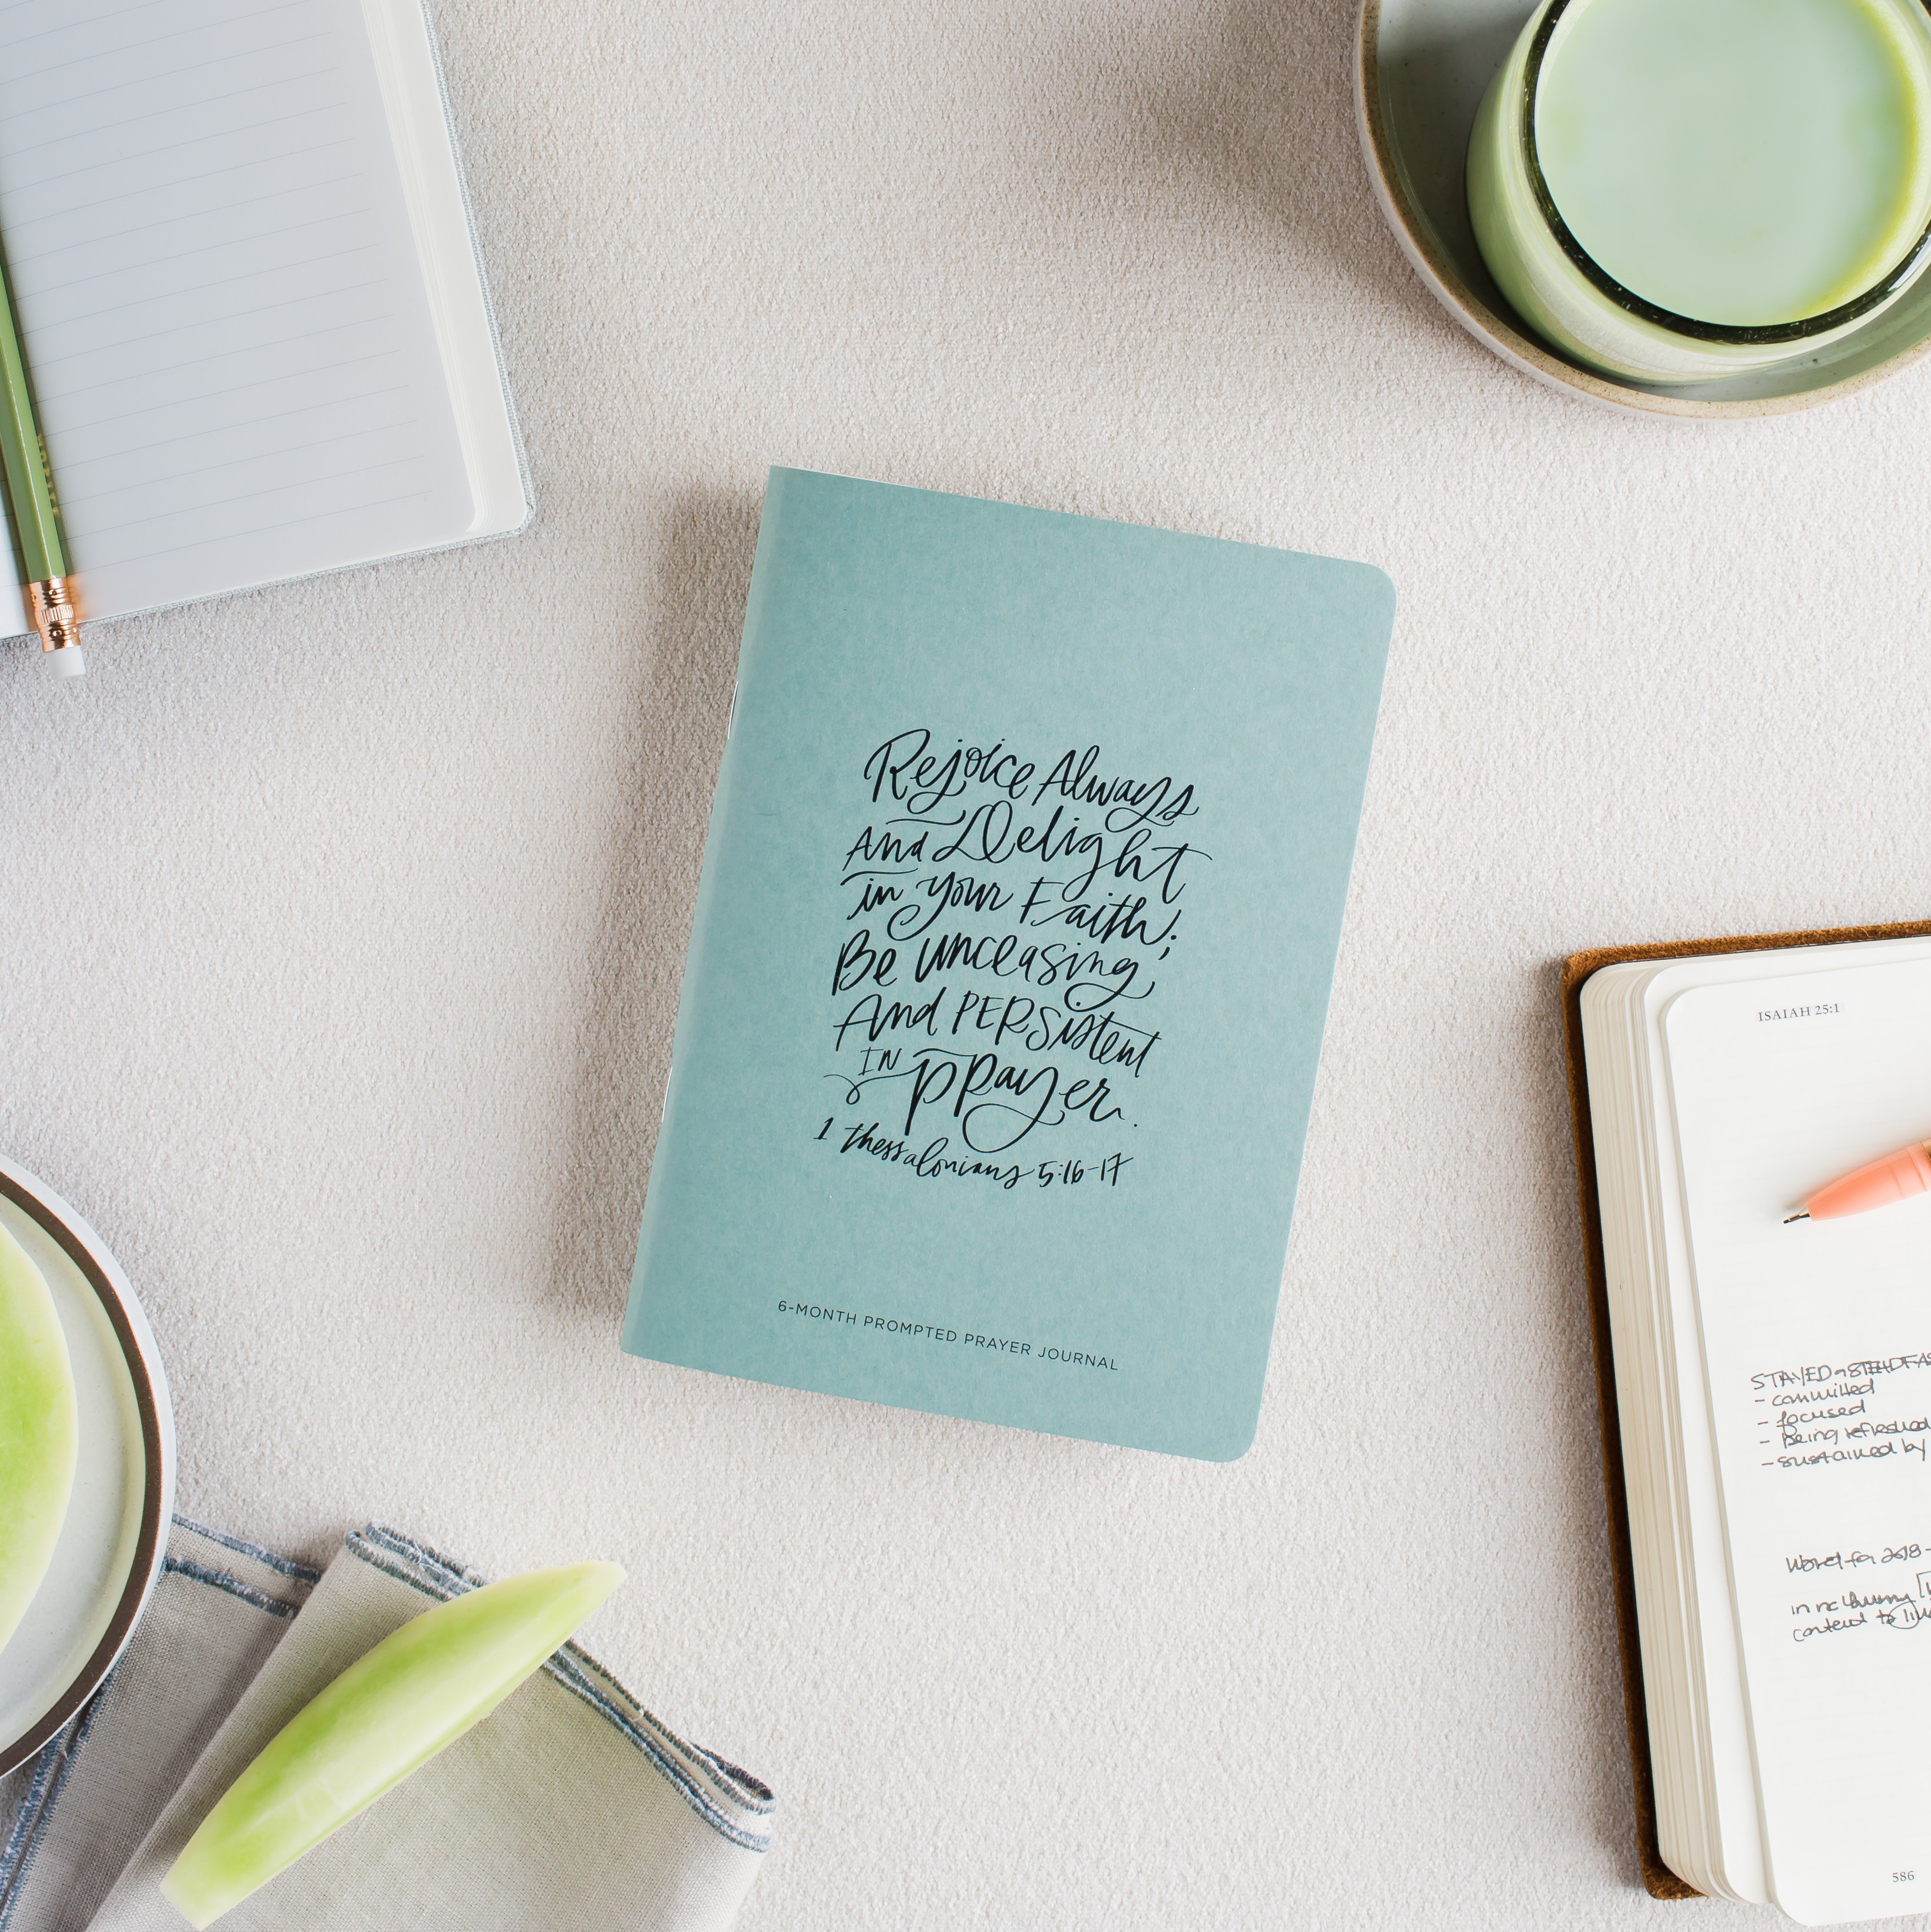 Rejoice Always
And Delight
in your Faith;
Be unceasing
And PERSistent
IN prayer.
1 thessalonians 5:16-17
6-MONTH PROMPTED PRAYER JOURNAL
ISAIAH 25:1
STAYED
- committed
- focused
- Being refreshed
- sustained by
Word for 2018 -
in
content to
586